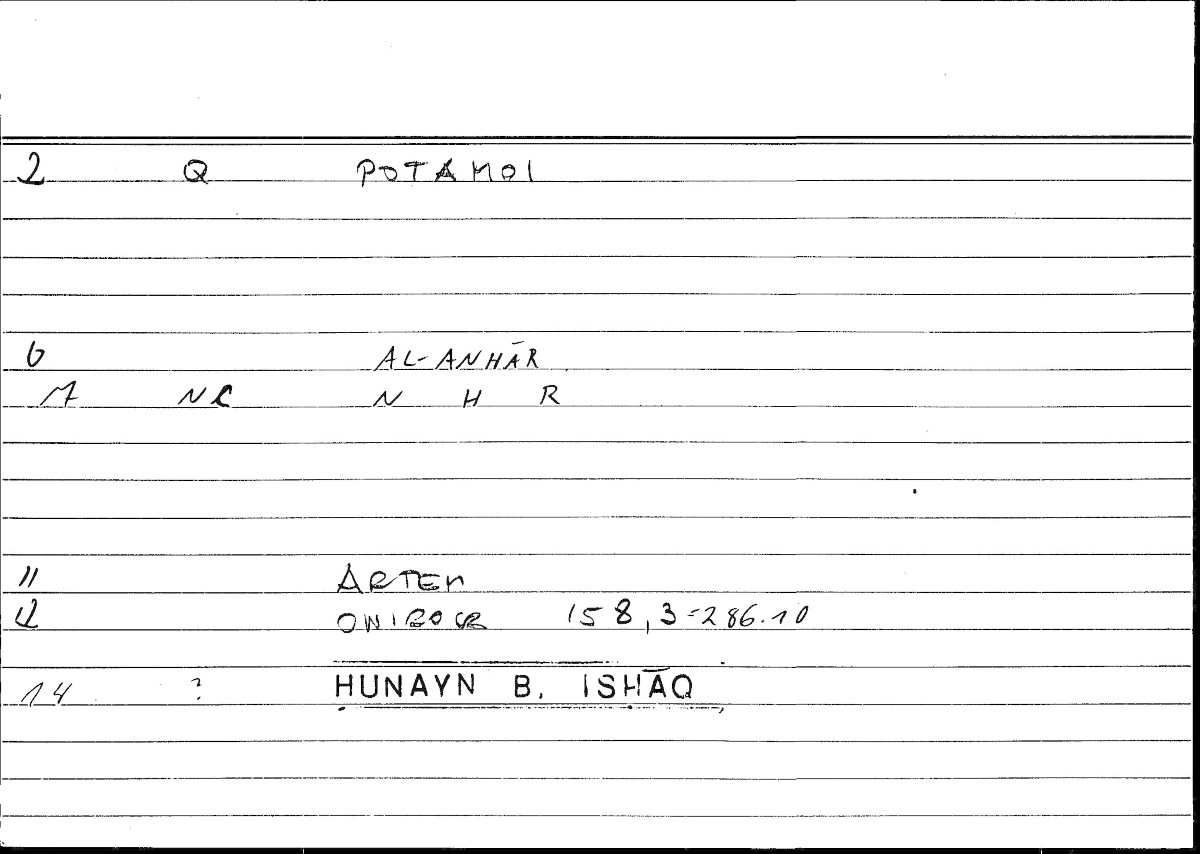 2 Q POTAMOI
6 AL-ANHĀR
7 NC N H R
11 ARTEM
12 ONIROCR 158,3=286.10
14 ? HUNAYN B. ISHĀQ